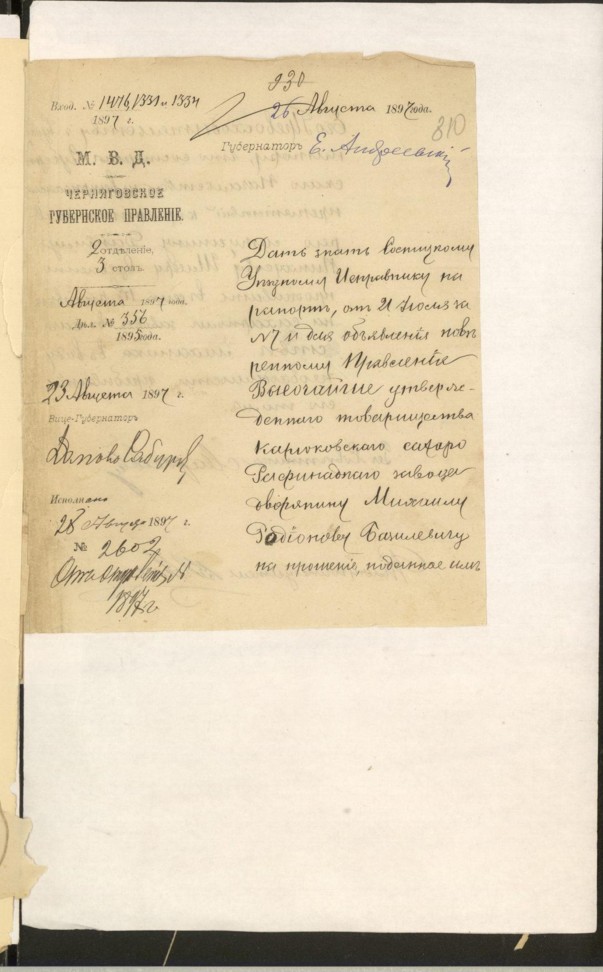 930
Вход. № 1476, 1331 и 1334
1897 г.
26 Августа 1897 года.
310
Губернаторъ Е. Андреевскій
М. В. Д.
ЧЕРНИГОВСКОЕ
ГУБЕРНСКОЕ ПРАВЛЕНІЕ.
2 отдѣленіе,
3 столъ.
Августа 1897 года.
Дѣл. № 356
1895 года.
23 Августа 1897 г.
Вице-Губернаторъ
Исполнено
28 Августа 1897 г.
№ 2602
1897 г.
Дать знать Сосницкому
Уѣздному Исправнику на
рапортъ, отъ 21 Іюля за
№ 7 и для объявленія повѣ
ренному Правленіе
Высочайше утверж-
деннаго товарищества
Карюковскаго сахаро
Рафинаднаго завода
дворянину Михаилу
Родіонову Базилевичу
на прошеніе, поданное имъ